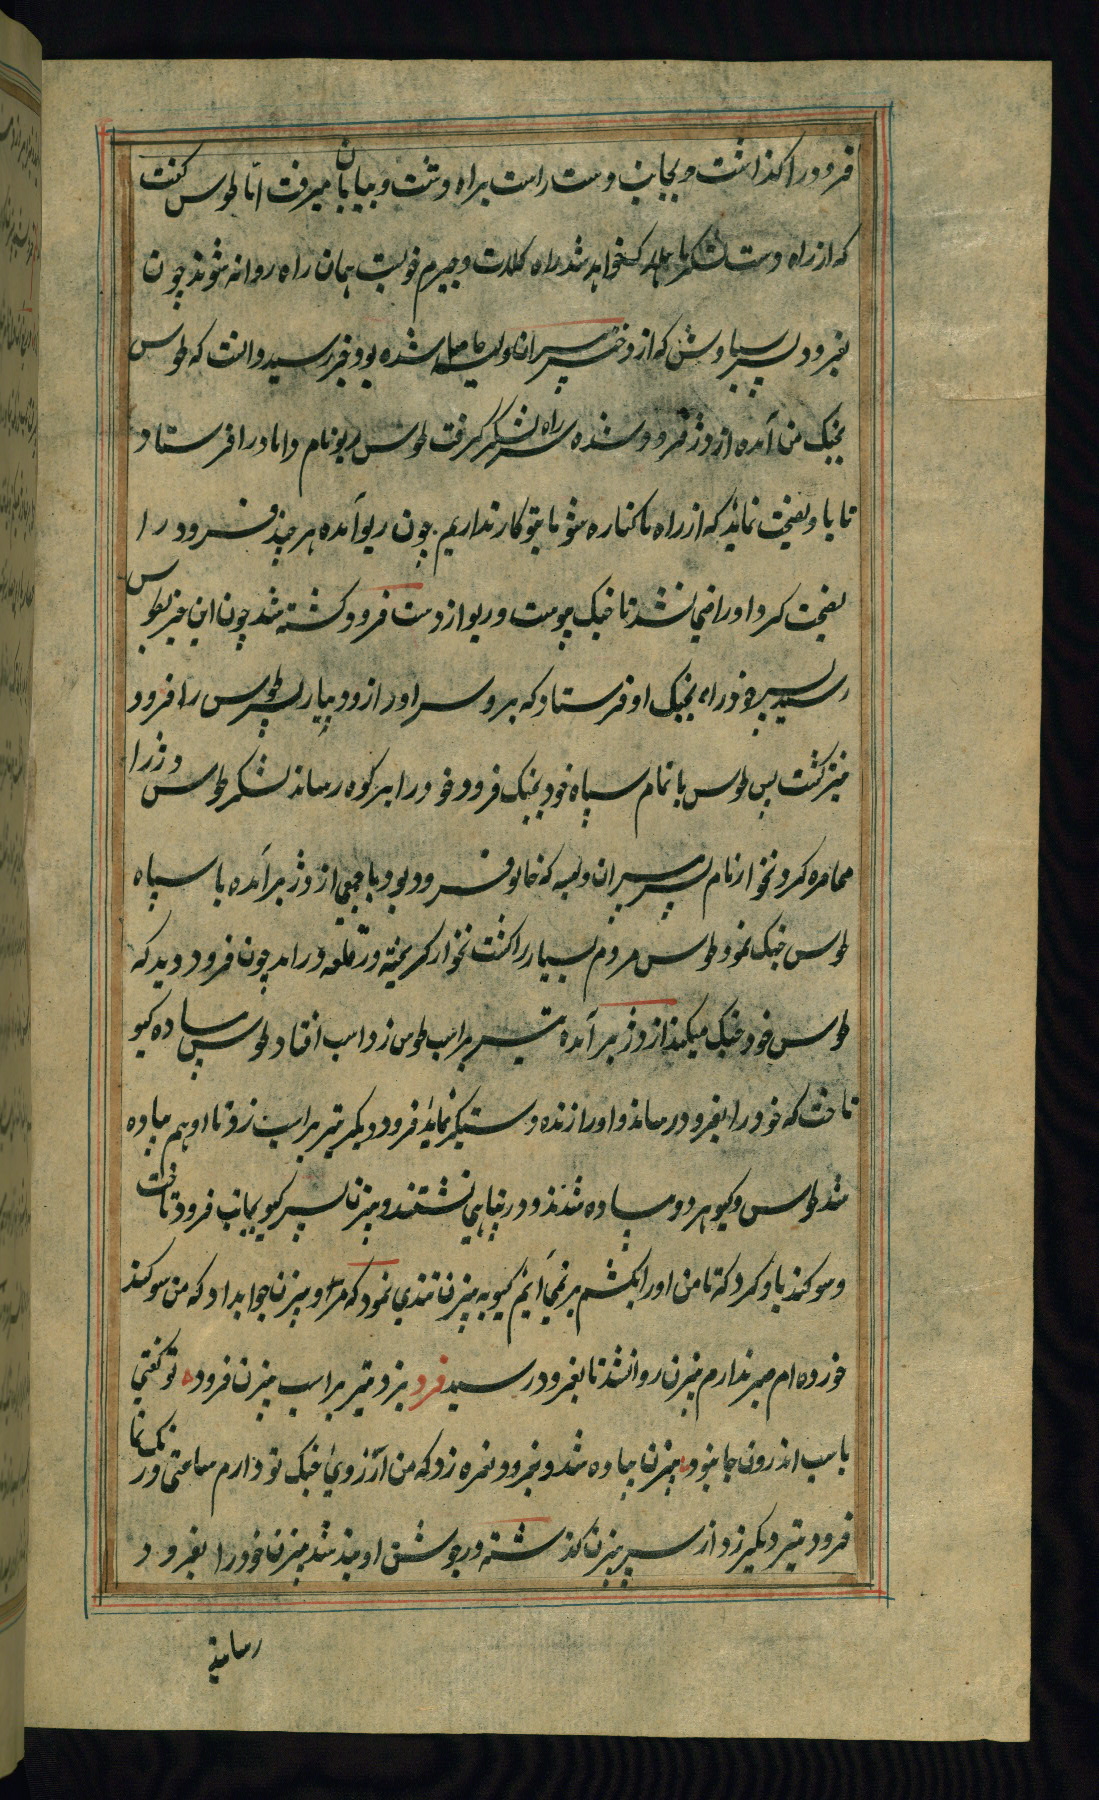 فرود را کذاشت و بجانب دست راست براه دشت و بیابان میرفت امّا طوس کفت
که از راه دشت لشکر ما هلاک خواهد شد راه کلات و جیرم خوبست همان راه روانه شوند چون
بفرود پسر سیاوش که از دختر پیران ویسه شده بود خبر رسید دانست که طوس
بجنک من آمده از دژ فرود شده سر راه لشکر کرفت طوس ریونام داماد را فرستاد
تا باو نصیحت نماید که از راه ما کناره شو ما بتو کار نداریم چون ریو آمده هر چند فرود را
نصیحت کرد او راضی نشد تا جنک پیوست و ریو از دست فرود کشته شد چون این خبر بطوس
رسید پسر خود را بجنک او فرستاد که برو سر او را زود بیار پسر طوس را فرود
نیز کشت پس طوس با تمام سپاه خود بجنک فرود خود را بر کوه رساند لشکر طوس دژ را
محاصره کرد نخوار نام پسر پیران ویسه که خالو فرود بود با جمعی از دژ برآمده با سپاه
طوس جنک نمود طوس مردم بسیار را کشت نخوار کریخته در قلعه درامد چون فرود دید که
طوس خود جنک میکند از دژ برآمده تیر بر اسب طوس زد اسب افتاد طوس پیاده کیو
تاخت که خود را بفرود رساند و او را زنده دستکیر نماید فرود دیکر تیر بر اسب زد تا او هم پیاده
شد طوس و کیو هر دو پیاده شدند و در پناهی نشستند و بیژن پسر کیو بجانب فرود تاخت
و سوکند یاد کرد که تا من او را نکشم بر نمی آیم کیو به بیژن تندی نمود که مرو بیژن جواب داد که من سوکند
خورده ام صبر ندارم بیژن روانشد تا بفرود رسید فرد بزد تیر بر اسب بیژن فرود ه تو کفتی
باسب اندرون جا نبود ه بیژن پیاده شد و بفرود نعره زد که من آرزوی جنک تو دارم ساعتی درنک نما
فرود تیر دیکر زد از سپر بیژن کذشته در جوشن او بند شد بیژن خود را بفرود
رسانید